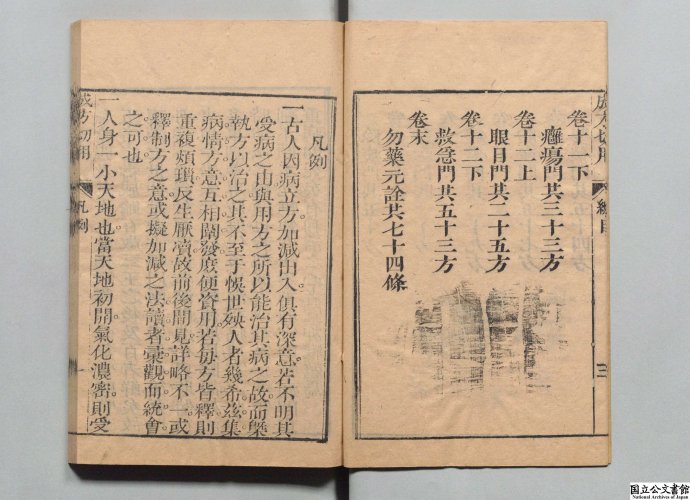 卷十一下
癰瘍門共三十三方
卷十二上
眼目門共二十五方
卷十二下
救急門共五十三方
卷末
勿藥元詮共七十四條
成方切用
總目
三
凡例
一古人因病立方加減出入俱有深意若不明其
受病之由與用方之所以能治其病之故而槩
執方以治之其不至于悞世殃人者幾希茲集
病情方意互相闡發庶便資用若每方皆釋則
重複煩瑣反生厭凟故前後間見詳略不一或
釋制方之意或擬加減之法讀者彙觀而統會
之可也
一人身一小天地也當天地初開氣化濃密則受
成方切用
凡例
一
国立公文書館
National Archives of Japan